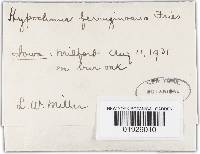 Hypochnus ferruginosus Fries
Iowa. Milford Aug 11, 1931
on bur oak
NEW YORK
BOTANICAL
L. W. Miller
NEW YORK BOTANICAL GARDEN
01929010